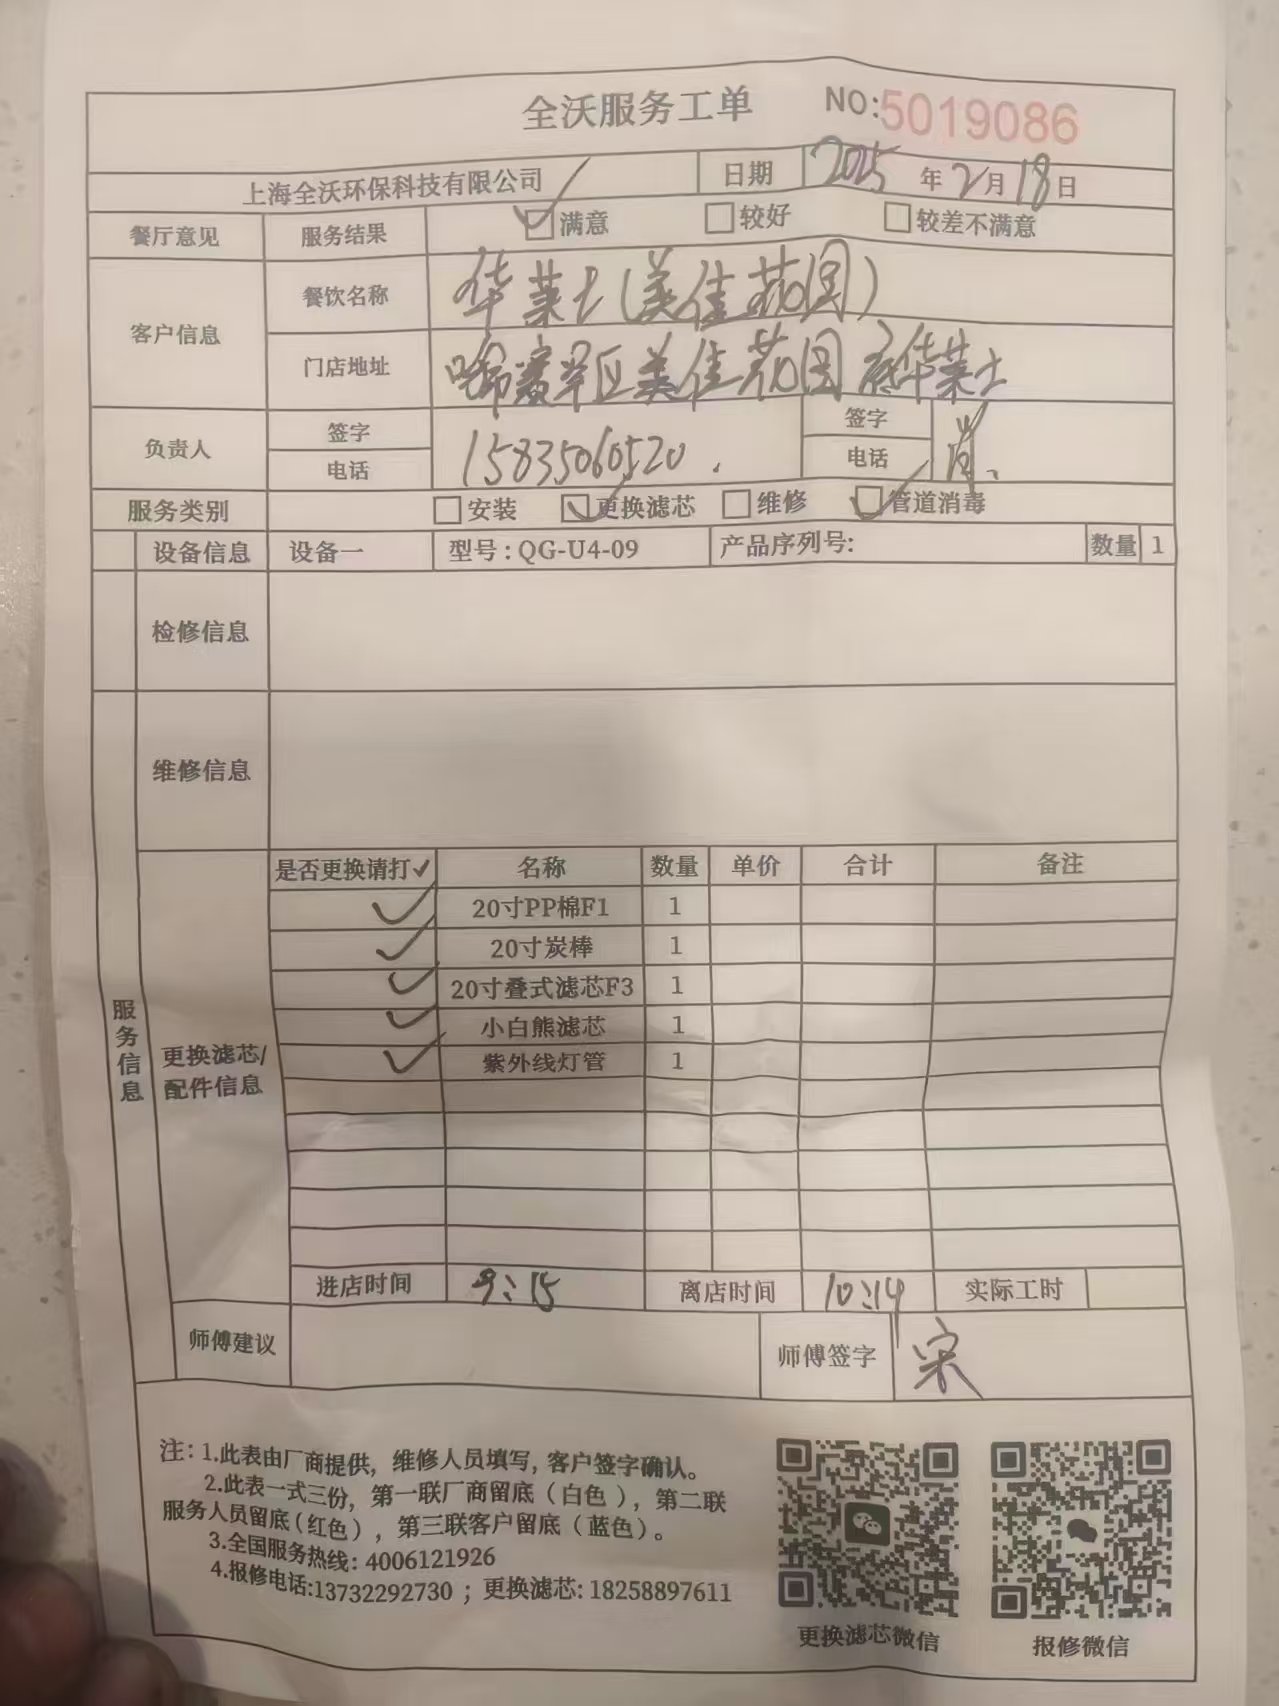 全沃服务工单 NO:5019086
上海全沃环保科技有限公司 日期 2025年2月18日
餐厅意见 服务结果 满意 较好 较差不满意
客户信息 餐饮名称 华莱士(美佳花园)
门店地址 美佳花园 底华莱士
负责人 签字 签字
电话 15835060520. 电话
服务类别 安装 更换滤芯 维修 管道消毒
设备信息 设备一 型号:QG-U4-09 产品序列号: 数量 1
检修信息
维修信息
服务信息
更换滤芯/
配件信息
是否更换请打✓ 名称 数量 单价 合计 备注
✓ 20寸PP棉F1 1
✓ 20寸炭棒 1
✓ 20寸叠式滤芯F3 1
✓ 小白熊滤芯 1
✓ 紫外线灯管 1
进店时间 9:15 离店时间 10:14 实际工时
师傅建议 师傅签字 宋
注:1.此表由厂商提供,维修人员填写,客户签字确认。
2.此表一式三份,第一联厂商留底(白色),第二联
服务人员留底(红色),第三联客户留底(蓝色)。
3.全国服务热线:4006121926
4.报修电话:13732292730;更换滤芯:18258897611
更换滤芯微信 报修微信